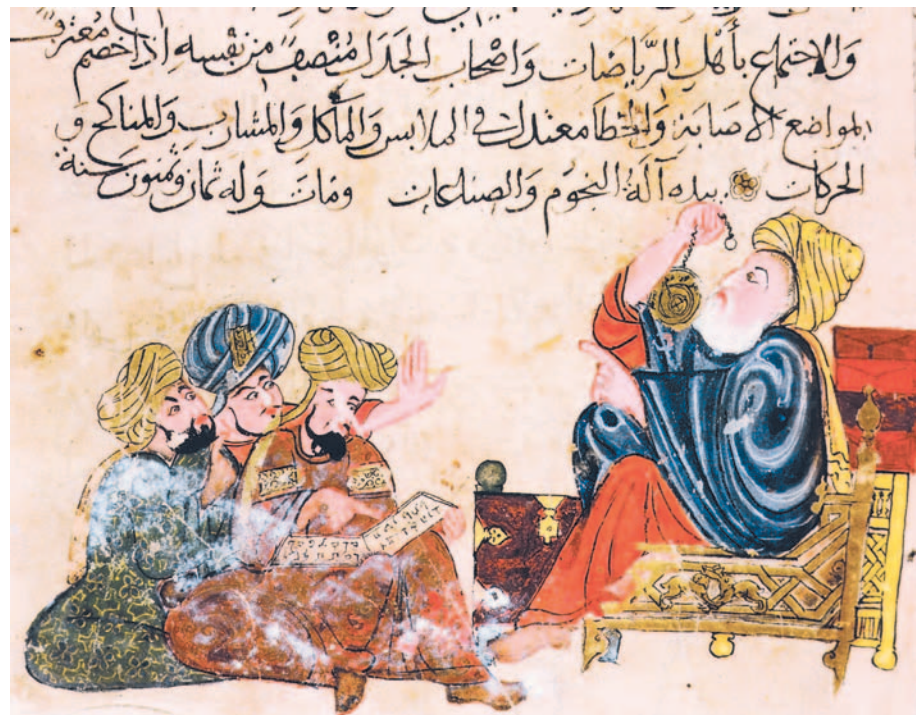 وَالاجتماع بأَهْل الرِّيَاضَات وَاصْحَاب الجَدَل مُنْصِف من نفْسِهِ اذا خصم معترف
بمواضع الاصَابة وَالخطَأ معتدل فى الملابس وَالمآكل وَالمشارب وَالمناكح و
الحركات بيده آلة النجوم وَالصناعات ومات وَله ثمان سنة